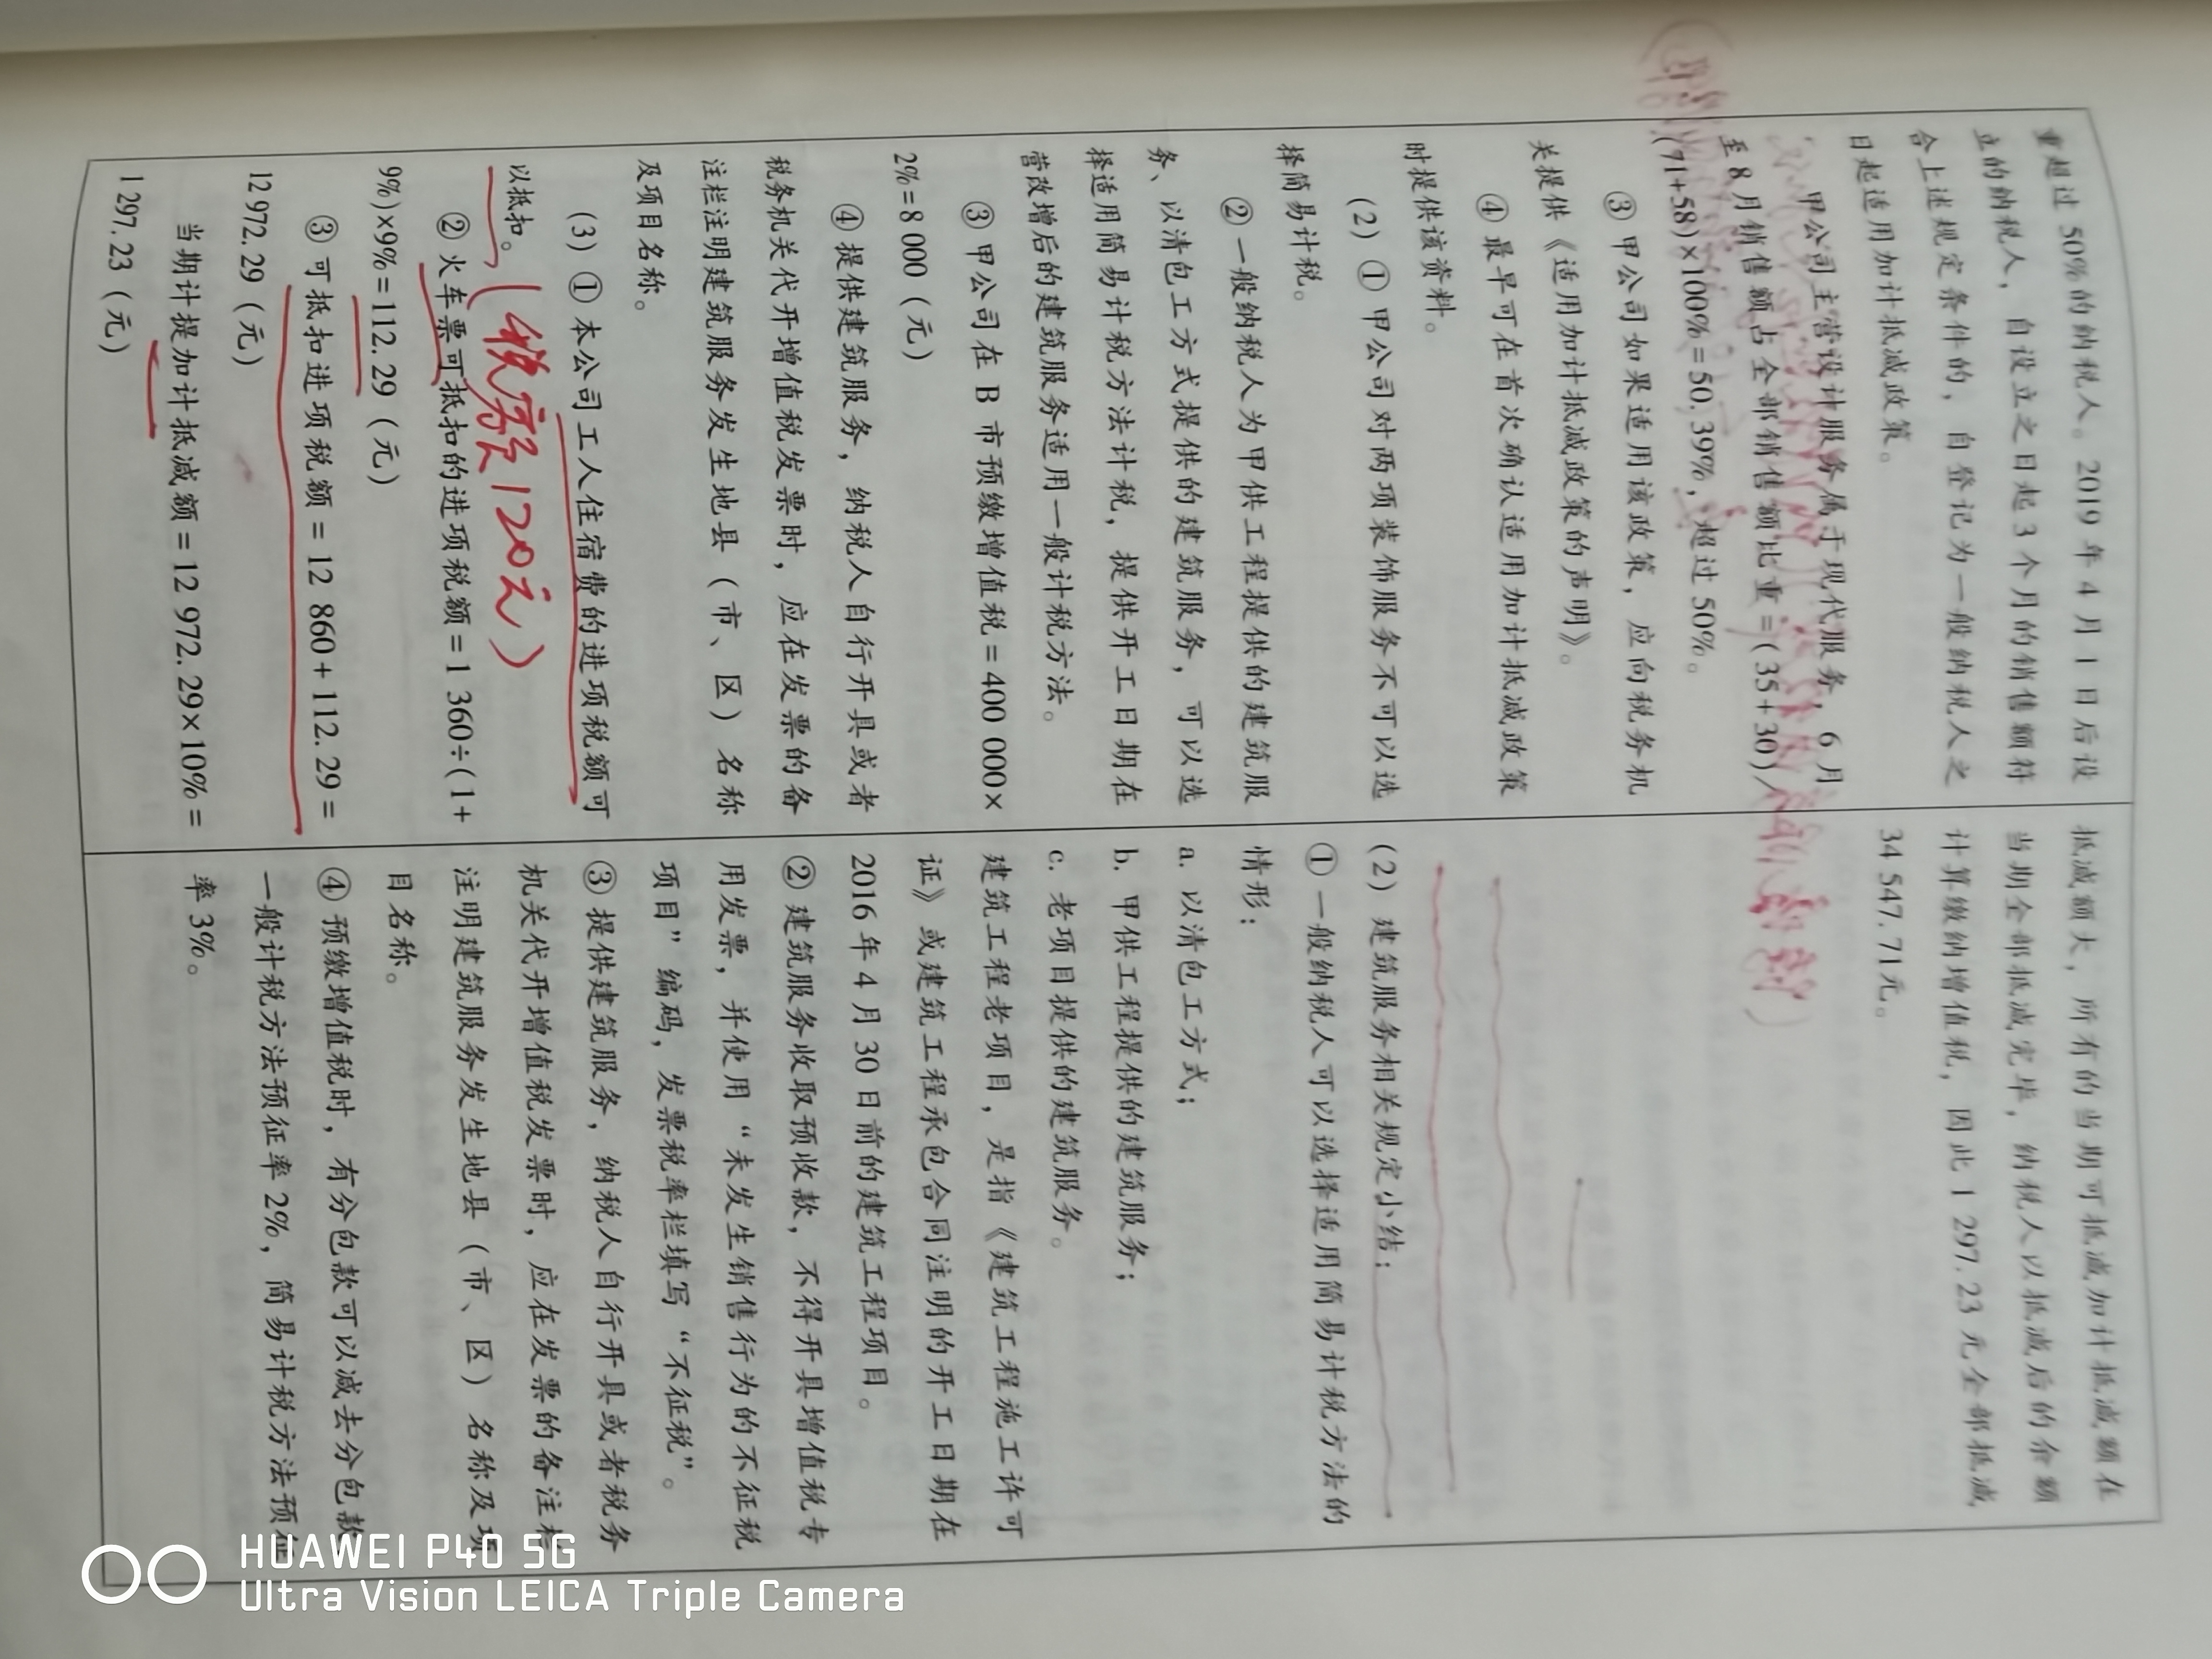 重超过 50%的纳税人。2019 年 4 月 1 日后设
立的纳税人，自设立之日起 3 个月的销售额符
合上述规定条件的，自登记为一般纳税人之
日起适用加计抵减政策。
甲公司主营设计服务属于现代服务，6 月
至 8 月销售额占全部销售额比重=(35+30)/
(71+58)×100%=50.39%，超过 50%。
③ 甲公司如果适用该政策，应向税务机
关提供《适用加计抵减政策的声明》。
④ 最早可在首次确认适用加计抵减政策
时提供该资料。
(2) ① 甲公司对两项装饰服务不可以选
择简易计税。
② 一般纳税人为甲供工程提供的建筑服
务、以清包工方式提供的建筑服务，可以选
择适用简易计税方法计税，提供开工日期在
营改增后的建筑服务适用一般计税方法。
③ 甲公司在 B 市预缴增值税=400 000×
2%=8 000（元）
④ 提供建筑服务，纳税人自行开具或者
税务机关代开增值税发票时，应在发票的备
注栏注明建筑服务发生地县（市、区）名称
及项目名称。
(3) ① 本公司工人住宿费的进项税额可
以抵扣。（税额120元）
② 火车票可抵扣的进项税额=1 360÷(1+
9%)×9%=112.29（元）
③ 可抵扣进项税额=12 860+112.29=
12 972.29（元）
当期计提加计抵减额=12 972.29×10%=
1 297.23（元）
抵减额大，所有的当期可抵减加计抵减额在
当期全部抵减完毕，纳税人以抵减后的余额
计算缴纳增值税，因此 1 297.23 元全部抵减
34 547.71 元。
(2) 建筑服务相关规定小结：
① 一般纳税人可以选择适用简易计税方法的
情形：
a. 以清包工方式；
b. 甲供工程提供的建筑服务；
c. 老项目提供的建筑服务。
建筑工程老项目，是指《建筑工程施工许可
证》或建筑工程承包合同注明的开工日期在
2016 年 4 月 30 日前的建筑工程项目。
② 建筑服务收取预收款，不得开具增值税专
用发票，并使用“未发生销售行为的不征税
项目”编码，发票税率栏填写“不征税”。
③ 提供建筑服务，纳税人自行开具或者税务
机关代开增值税发票时，应在发票的备注栏
注明建筑服务发生地县（市、区）名称及项
目名称。
④ 预缴增值税时，有分包款可以减去分包款，
一般计税方法预征率 2%，简易计税方法预征
率 3%。
HUAWEI P40 5G
Ultra Vision LEICA Triple Camera